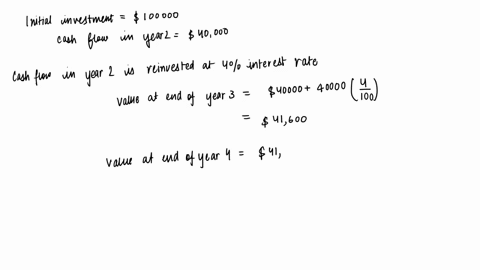 Initial investment = $ 100000
cash flow in year 2 = $ 40,000
Cash flow in year 2 is reinvested at 4% interest rate
value at end of year 3 = $40000 + 40000 (4/100)
= $ 41,600
value at end of year 4 = $ 41,